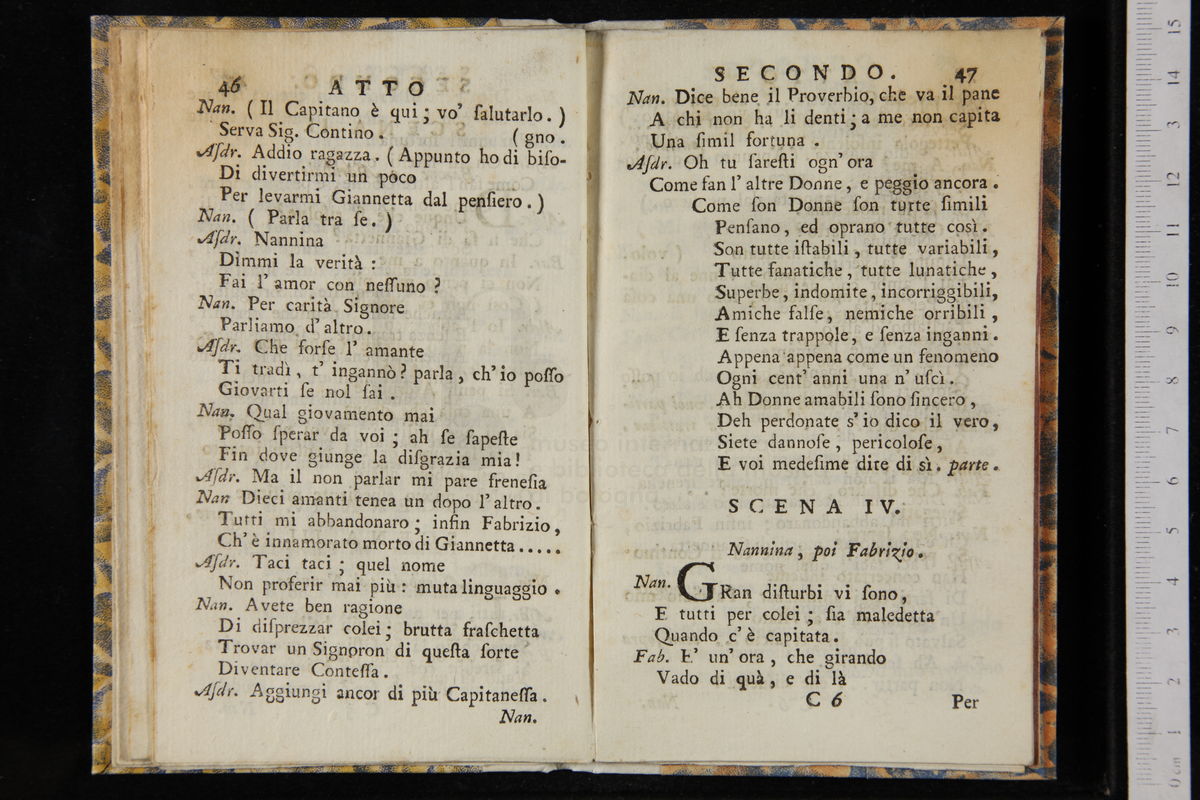 46 ATTO
Nan. ( Il Capitano è qui ; vo' ſalutarlo . )
Serva Sig. Contino . ( gno .
Aſdr. Addio ragazza . ( Appunto ho di biſo-
Di divertirmi un poco
Per levarmi Giannetta dal penſiero . )
Nan. ( Parla tra ſe . )
Aſdr. Nannina
Dimmi la verità :
Fai l' amor con neſſuno ?
Nan. Per carità Signore
Parliamo d' altro .
Aſdr. Che forſe l' amante
Ti tradì , t' ingannò ? parla , ch' io poſſo
Giovarti ſe nol ſai .
Nan. Qual giovamento mai
Poſſo ſperar da voi ; ah ſe ſapeſte
Fin dove giunge la diſgrazia mia !
Aſdr. Ma il non parlar mi pare freneſia
Nan Dieci amanti tenea un dopo l' altro .
Tutti mi abbandonaro ; infin Fabrizio ,
Ch' è innamorato morto di Giannetta . . . . .
Aſdr. Taci taci ; quel nome
Non proferir mai più : muta linguaggio .
Nan. Avete ben ragione
Di diſprezzar colei ; brutta fraſchetta
Trovar un Signoron di queſta ſorte
Diventare Conteſſa .
Aſdr. Aggiungi ancor di più Capitaneſſa .
Nan.
SECONDO. 47
Nan. Dice bene il Proverbio, che va il pane
A chi non ha li denti ; a me non capita
Una ſimil fortuna .
Aſdr. Oh tu ſareſti ogn' ora
Come fan l' altre Donne , e peggio ancora .
Come ſon Donne ſon tutte ſimili
Penſano , ed oprano tutte così .
Son tutte iſtabili , tutte variabili ,
Tutte fanatiche , tutte lunatiche ,
Superbe , indomite , incorriggibili,
Amiche falſe , nemiche orribili ,
E ſenza trappole , e ſenza inganni .
Appena appena come un fenomeno
Ogni cent' anni una n' uſcì .
Ah Donne amabili ſono ſincero ,
Deh perdonate s' io dico il vero,
Siete dannoſe , pericoloſe ,
E voi medeſime dite di sì . parte .
SCENA IV.
Nannina , poi Fabrizio .
Nan. GRan diſturbi vi ſono ,
E tutti per colei ; ſia maledetta
Quando c' è capitata .
Fab. E' un' ora , che girando
Vado di quà , e di là
C 6 Per